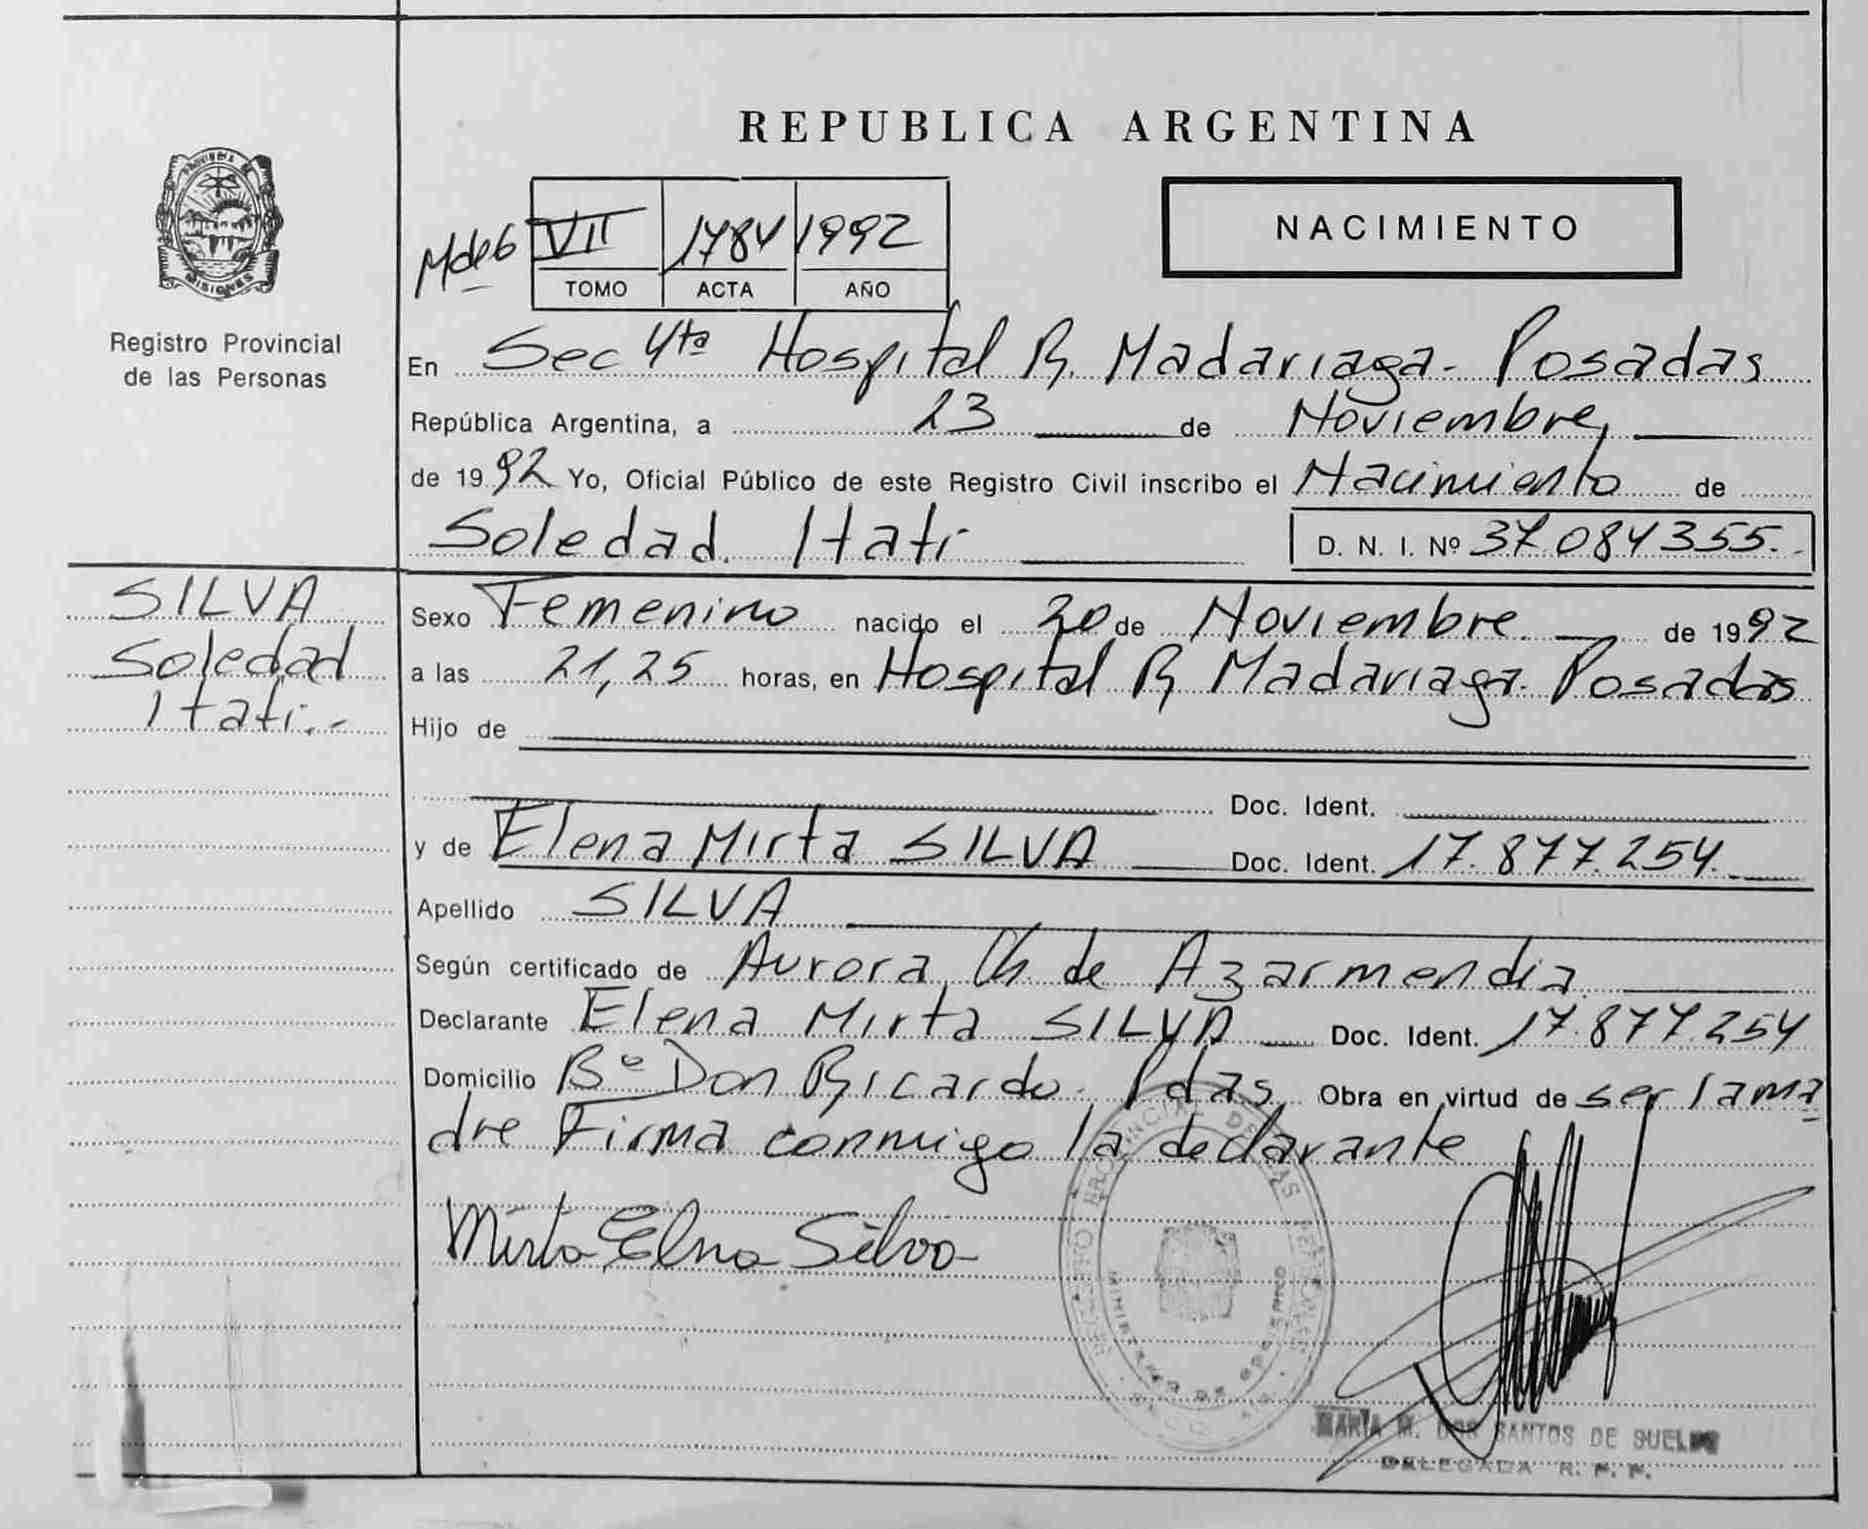 REPUBLICA ARGENTINA
PROVINCIA DE
MISIONES
Registro Provincial
de las Personas
NACIMIENTO
VII 1784 1992
TOMO ACTA AÑO
En Sec 4ta Hospital R. Madariaga - Posadas
República Argentina, a 23 de Noviembre
de 1992 Yo, Oficial Público de este Registro Civil inscribo el Nacimiento de
Soledad Itatí D. N. I. Nº 37.084.355.-
SILVA
Soledad
Itatí.-
Sexo Femenino nacido el 20 de Noviembre de 1992
a las 21,25 horas, en Hospital R Madariaga - Posadas
Hijo de
Doc. Ident.
y de Elena Mirta SILVA Doc. Ident. 17.877.254.
Apellido SILVA
Según certificado de Aurora Ch. de Azarmendia
Declarante Elena Mirta SILVA Doc. Ident. 17.877.254
Domicilio Bº Don Ricardo - Pdas Obra en virtud de ser la ma
dre Firma conmigo la declarante
Mirta Elena Silva
REGISTRO PROVINCIAL DE LAS PERSONAS
MINISTERIO DE GOBIERNO
MARIA M. DOS SANTOS DE SUELDO
DELEGADA R. P. P.